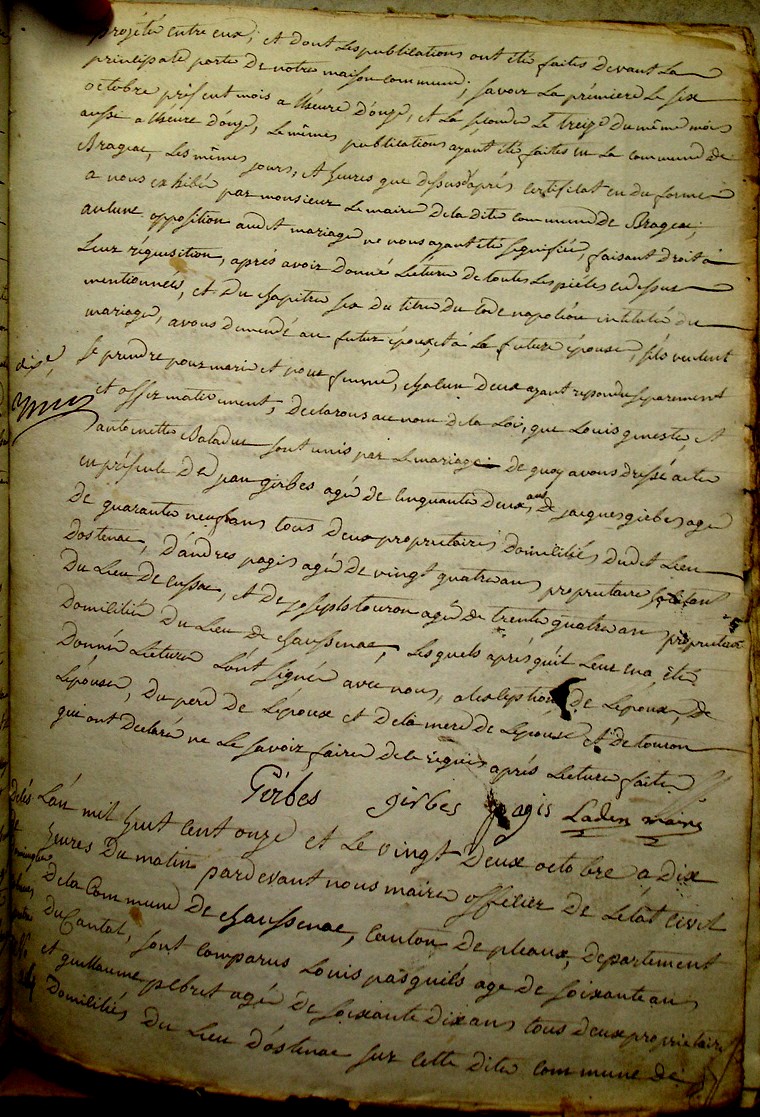 projetés entre eux; et dont les publications ont été faites devant la
principale porte de notre maison commune; savoir la première le six
octobre présent mois a l'heure d'onze, et la seconde le treize du même mois
aussi a l'heure d'onze, le mêmes publications ayant été faites en la commune de
Brageac, les mêmes jours, et heures que dessus d'après certificat en du forme
a nous exhibé par monsieur le maire de la dite commune de Brageac;
aucune opposition audit mariage ne nous ayant été signifiée, faisant droit a
leur réquisition, après avoir donné lecture de toutes les pièces cy dessus
mentionnées, et du chapitre six du titre du code napoléon intitulé du
mariage, avons demandé au futur époux, et à la future épouse, s'ils veulent
se prendre pour mari et pour femme, chacun d'eux ayant repondu separement
et affirmativement, declarons au nom de la loi, que Louis geneste, et
antoinette Baladur sont unis par le mariage de quoy avons dressé acte
en présence de jean girbes agé de cinquante deux ans, de jacques girbes agé
de quarante neuf ans tous deux proprietaires domiciliés dudit Lieu
dostenac, d'andres pagis agé de vingt quatre ans proprietaire
du Lieu de cussac, et de joseph touron agé de trente quatre ans proprietaire
domicilié du Lieu de chaussenac, lesquels après qu'il leur en a été
donné lecture l'ont signé avec nous, a l'exception de l'époux, de
l'épouse, du pere de l'époux et de la mere de l'épouse et de touron
qui ont declaré ne le savoir faire de ce requis après lecture faite
Girbes girbes pagis Laden maire
L'an mil huit cent onze et le vingt deux octobre a dix
heures du matin pardevant nous maire officier de l'état civil
de la Commune de chaussenac, canton de pleaux, departement
du Cantal, sont comparus Louis pasquiels age de soixante ans
et guillaume pebrel agé de soixante dix ans tous deux proprietaire
domiciliés du Lieu d'ostenac sur cette dite commune de